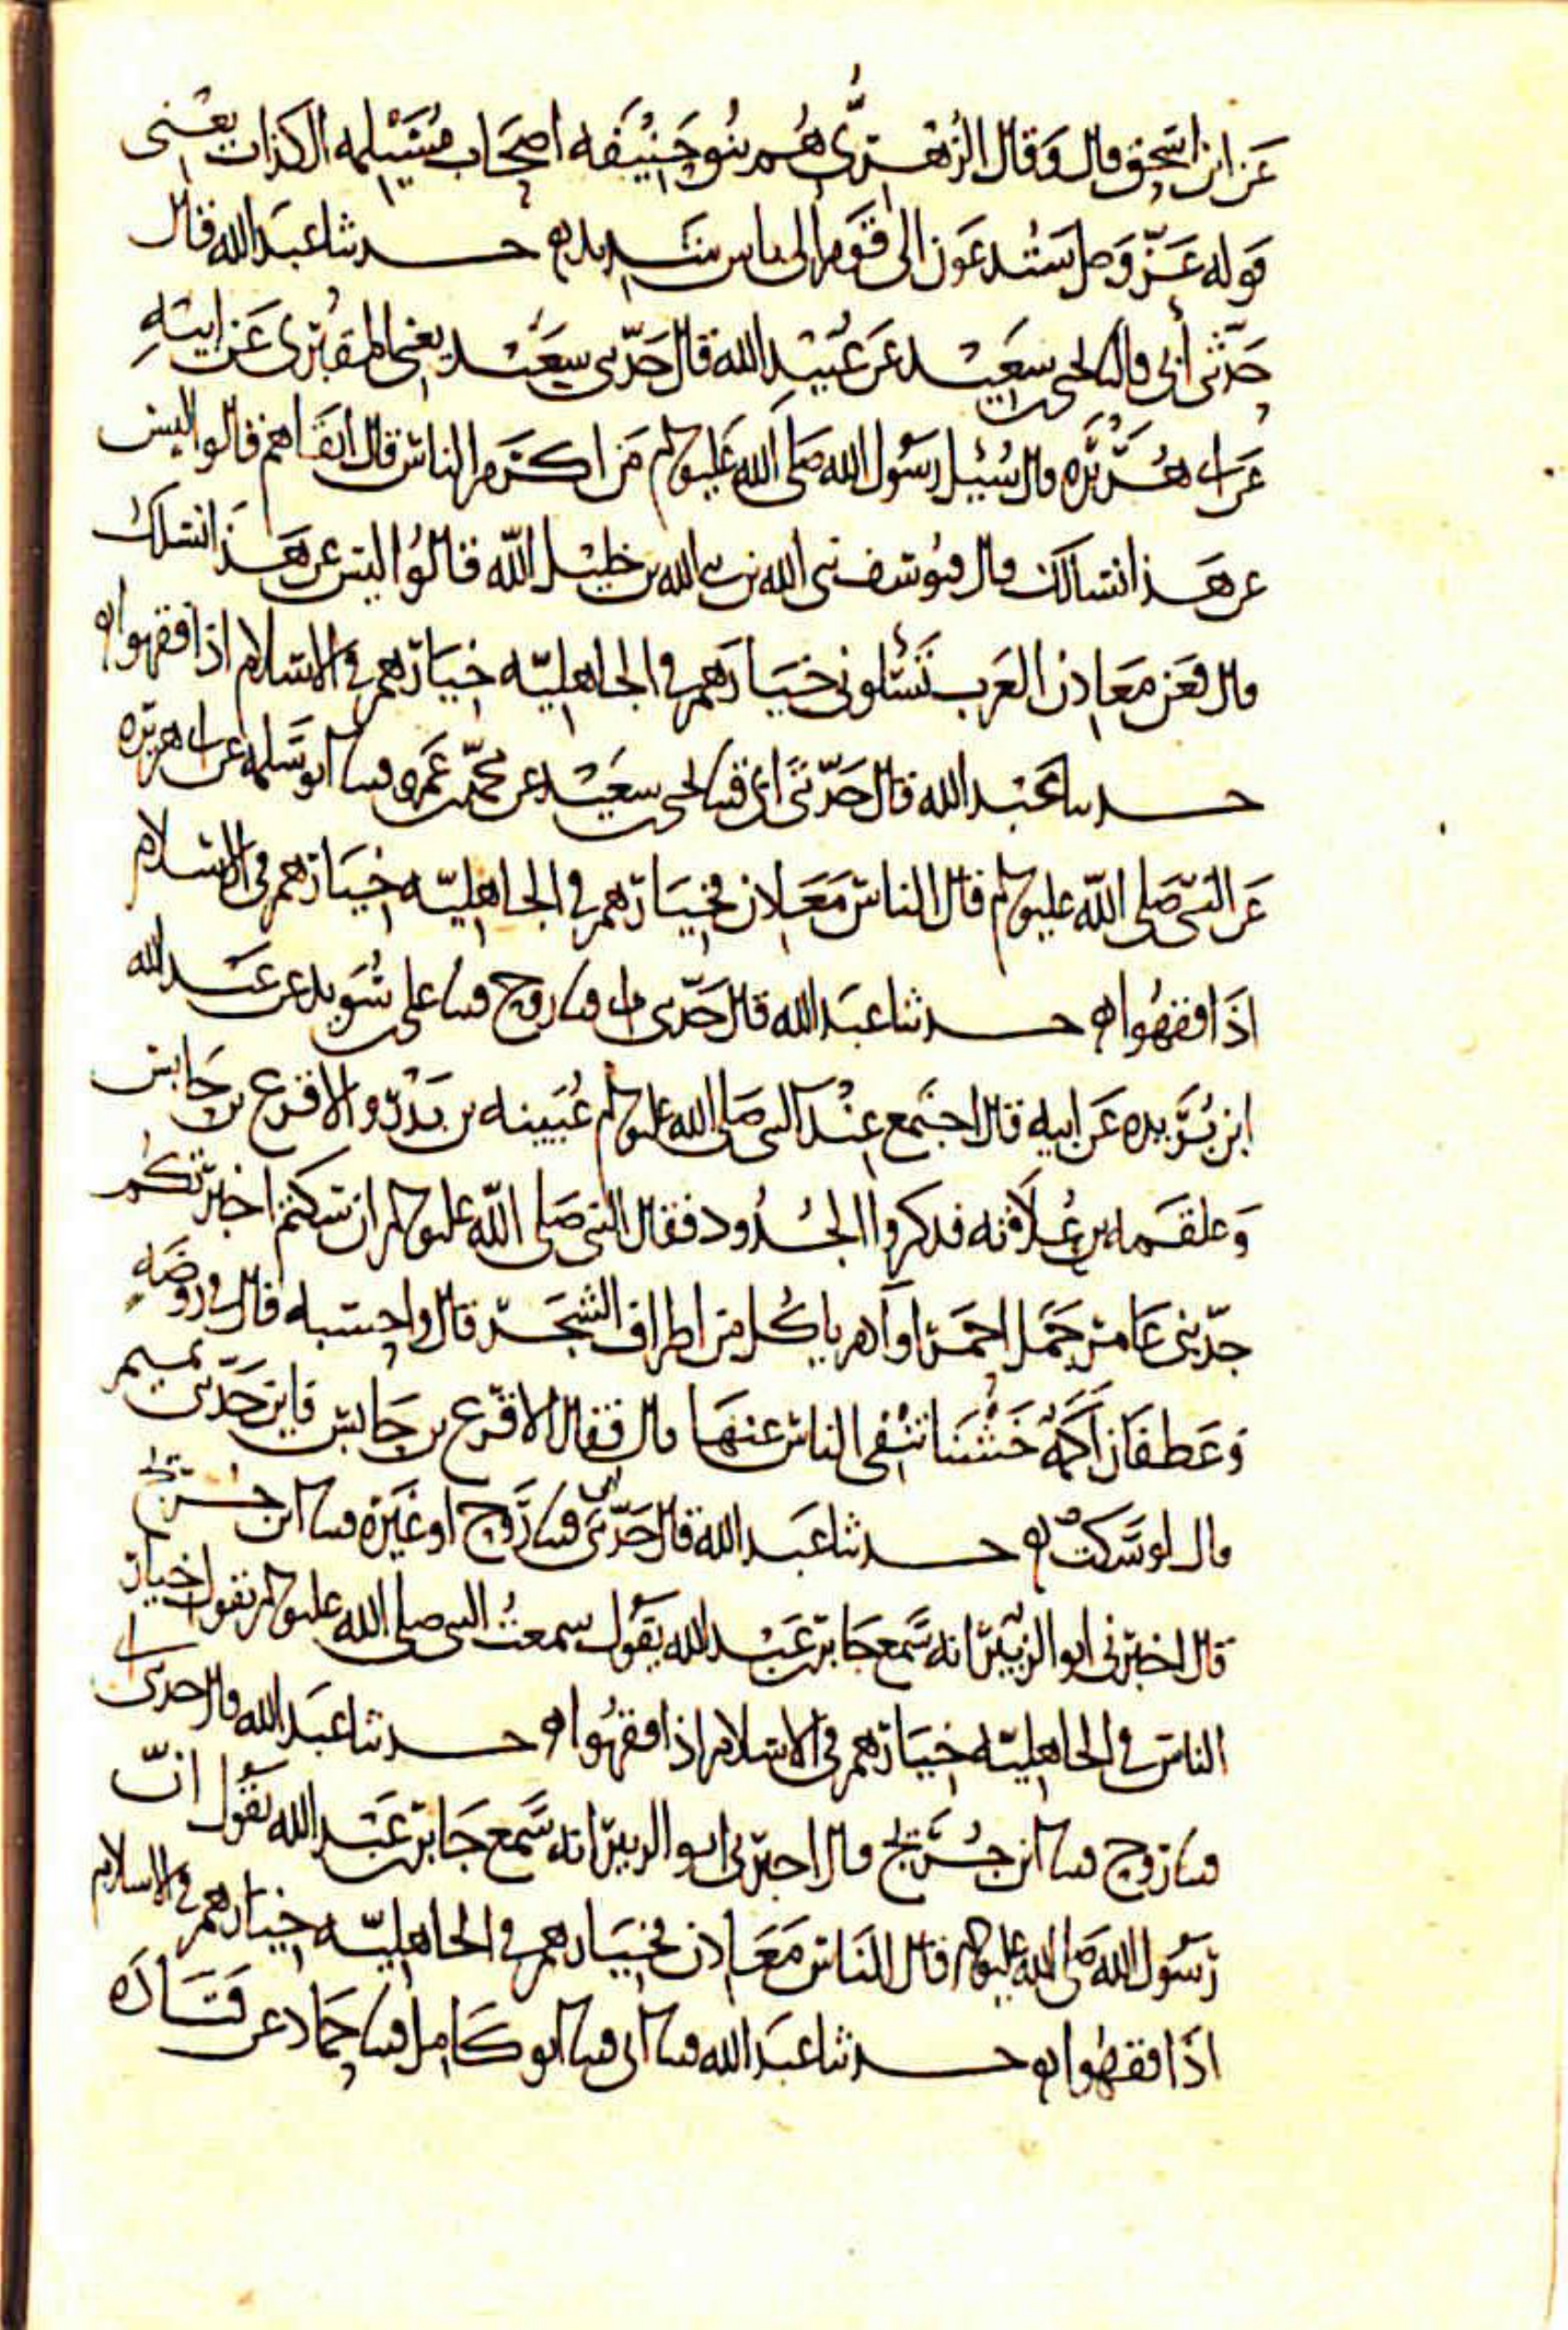 عن ابن اسحق قال وقال الزهري هم بنو حنيفه اصحاب مسيلمه الكذاب يعني
قوله عز وجل ستدعون الى قوم اولى باس شديد حدثنا عبد الله قال
حدثني أبي قال يحيى بن سعيد عن عبيد الله قال حدثني سعيد يعني المقبري عن ابيه
عن ابي هريره قال سئل رسول الله صلى الله عليه وسلم من اكرم الناس قال اتقاهم قالوا ليس
عن هذا نسالك قال فيوسف نبي الله بن نبي الله بن خليل الله قالوا ليس عن هذا نسلك
قال فعن معادن العرب تسئلوني خيارهم في الجاهليه خيارهم في الاسلام اذا فقهوا
حدثنا عبد الله قال حدثني ابي قثنا يحيى بن سعيد عن محمد بن عمرو قثنا ابو سلمه عن ابي هريره
عن النبي صلى الله عليه وسلم قال الناس معادن فخيارهم في الجاهليه خيارهم في الاسلام
اذا فقهوا حدثنا عبد الله قال حدثني ابي قثنا روح قثنا علي بن سويد عن عبد الله
ابن بريده عن ابيه قال اجتمع عند النبي صلى الله عليه وسلم عيينه بن بدر والاقرع بن حابس
وعلقمه بن علاثه فذكروا الجدود فقال النبي صلى الله عليه وسلم ان سكتم اخبرتكم
جد بني عامر جمل احمر او آدم ياكل من اطراف الشجر قال واحسبه قال في روضه
وعطفان أكمه خشنا تنفي الناس عنها قال فقال الاقرع بن حابس فاين جد بني تميم
قال لو سكت حدثنا عبد الله قال حدثني ابي قثنا روح او غيره قثنا ابن جريج
قال اخبرني ابو الزبير انه سمع جابر بن عبد الله يقول سمعت النبي صلى الله عليه وسلم يقول خيار
الناس في الجاهليه خيارهم في الاسلام اذا فقهوا حدثنا عبد الله قال حدثني ابي
قثنا روح قثنا ابن جريج قال اخبرني ابو الزبير انه سمع جابر بن عبد الله يقول ان
رسول الله صلى الله عليه وسلم قال الناس معادن فخيارهم في الجاهليه خيارهم في الاسلام
اذا فقهوا حدثنا عبد الله قثنا ابي قثنا ابو كامل قثنا حماد عن قتاده